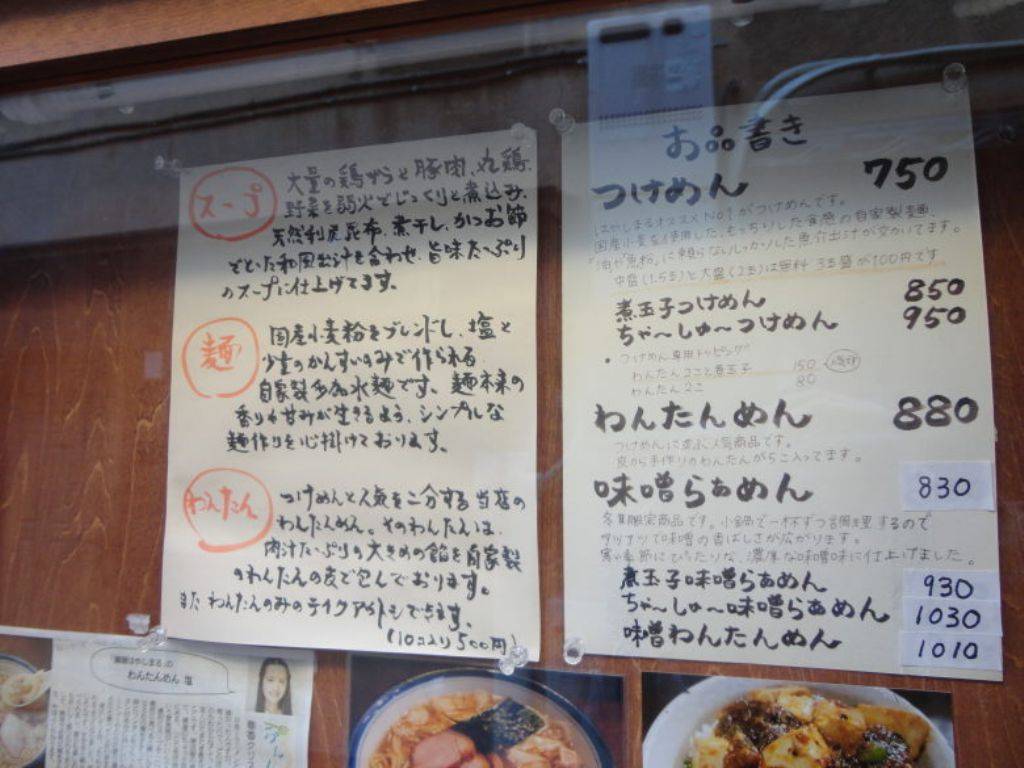 スープ
大量の鶏がらと豚肉、丸鶏、
野菜を弱火でじっくりと煮込み、
天然利尻昆布、煮干し、かつお節
でとった和風出汁を合わせ、旨味たっぷり
のスープに仕上げてます。
麺
国産小麦粉をブレンドし、塩と
少量のかんすいのみで作られる
自家製多加水麺です。麺本来の
香りや甘みが生きるよう、シンプルな
麺作りを心掛けております。
わんたん
つけめんと人気を二分する当店の
わんたんめん。そのわんたんは、
肉汁たっぷりの大きめの餡を自家製
のわんたんの皮で包んでおります。
また わんたんのみのテイクアウトもできます。
(10コ入り500円)
お品書き
つけめん 750
はやしまるオススメNO1がつけめんです。
国産小麦を使用した、もっちりした食感の自家製麺、
「油や魚粉」に頼らないしっかりした魚介出汁が効いてます。
中盛(1.5玉)と大盛(2玉)は無料 3玉盛が100円です
煮玉子つけめん 850
ちゃ～しゅ～つけめん 950
・つけめん専用トッピング
わんたん2こと煮玉子 150
わんたん2こ 80
わんたんめん 880
つけめんに並ぶ人気商品です。
皮から手作りのわんたんが5こ入ってます。
味噌らぁめん 830
冬季限定商品です。小鍋で一杯ずつ調理するので
アツアツで味噌の香ばしさが広がります。
寒い季節にぴったりな、濃厚な味噌味に仕上げました。
煮玉子味噌らぁめん 930
ちゃ～しゅ～味噌らぁめん 1030
味噌わんたんめん 1010
「麺処はやしまる」の
わんたんめん 塩